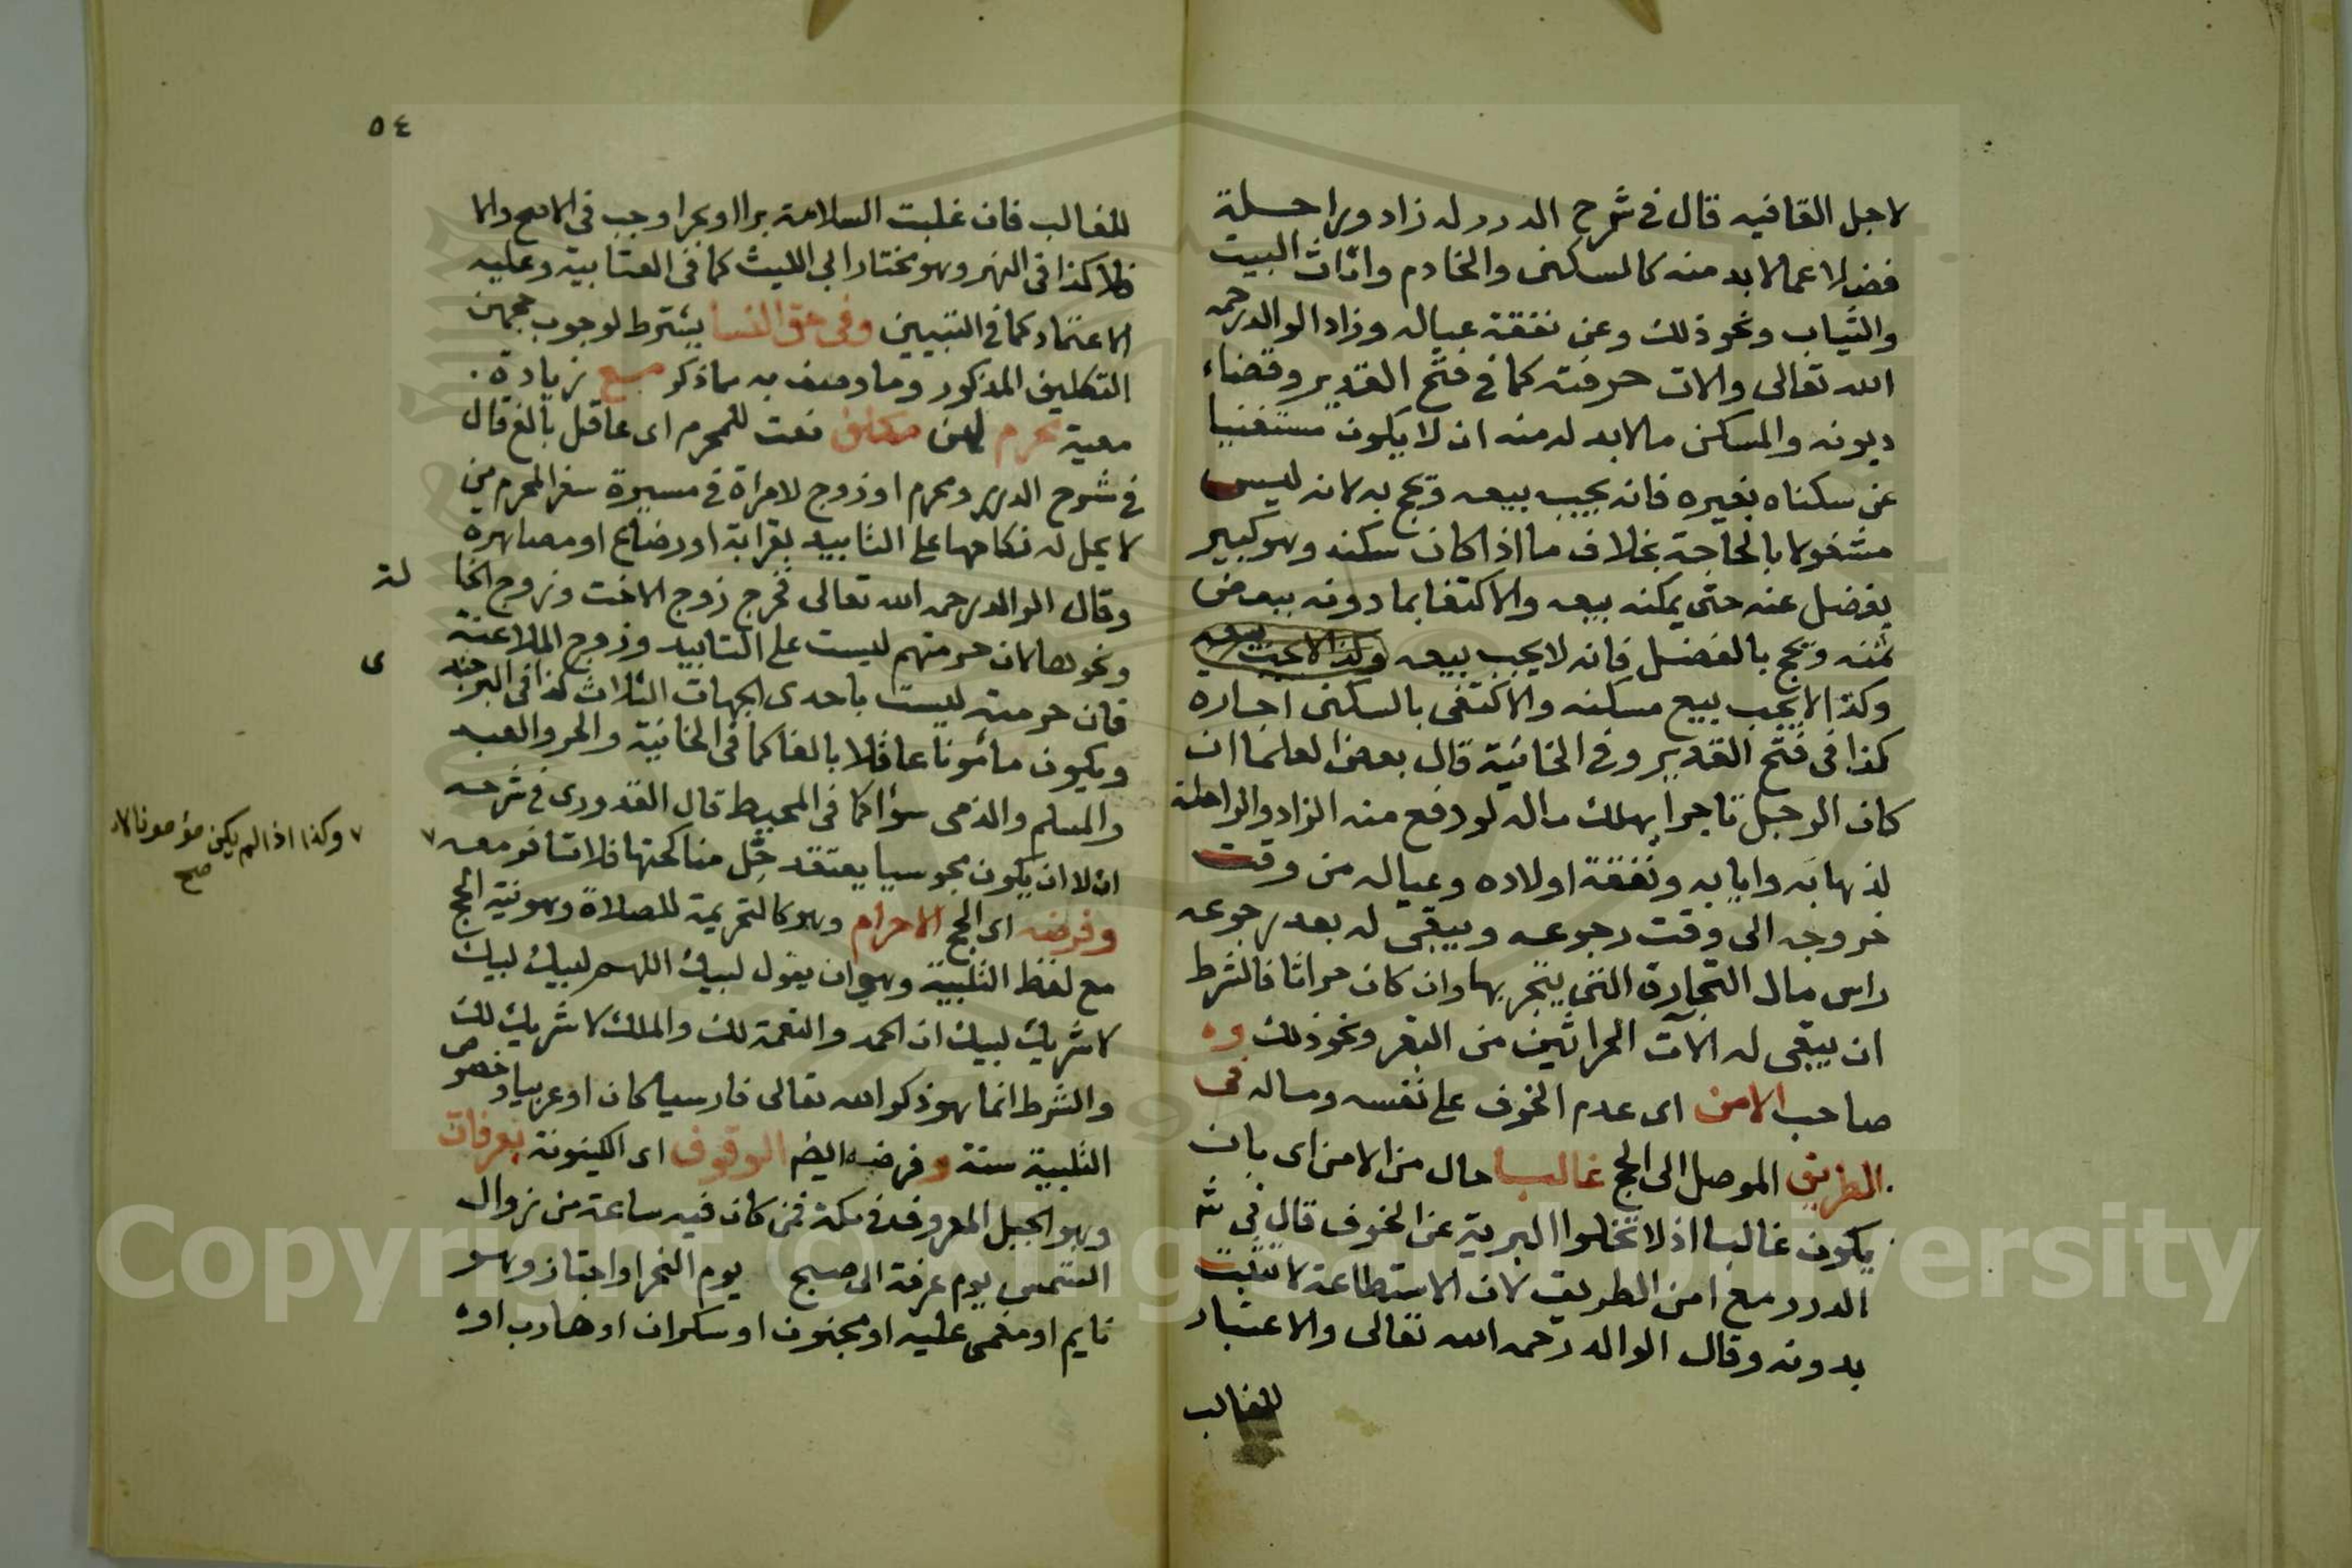 لاجل القافيه قال في شرح الدرر له زاد وراحلة
فضلا عما لا بد منه كالسكنى والخادم واثاث البيت
والثياب ونحو ذلك وعن نفقة عياله وزاد الوالد رحمه
الله تعالى والات حرفته كما في فتح القدير وقضاء
ديونه والمسكن مالابد له منه ان لا يكون مستغنيا
عن سكناه بغيره فانه يجب بيعه ويحج به لانه ليس
مشغولا بالحاجة بخلاف ما اذا كان سكنه وهو كبير
يفضل عنه حتى يمكنه بيعه والاكتفا بما دونه ببعض
ثمنه ويحج بالفضل فانه لا يجب بيعه وكذا لا يجب بيعه
وكذا لا يجب بيع مسكنه والاكتفى بالسكنى اجاره
كذا في فتح القدير وفي الخانية قال بعض العلما ان
كان الرجل تاجرا يملك ماله لو دفع منه الزاد والراحلة
لذهابه وايابه ونفقة اولاده وعياله من وقت
خروجه الى وقت رجوعه ويبقى له بعد رجوعه
راس مال التجارة التي يتجر بها وان كان حراثا فالشرط
ان يبقى له الآت الحراثين من البقر ونحو ذلك وه
صاحب الامن اى عدم الخوف على نفسه وماله في
الطريق الموصل الى الحج غالبا حال من الامن اى بان
يكون غالبا اذ لا تخلوا البرية عن الخوف قال في ش
الدرر مع امن الطريق لان الاستطاعة لا تثبت
بدونه وقال الوالد رحمه الله تعالى والاعتبار
للغالب
٥٤
للغالب فان غلبت السلامة برا او بحرا وجب في الاصح والا
فلا كذا في النهر وهو مختار ابي الليث كما في العتابية وعليه
الاعتماد كما في التبيين وفي حق النسا يشترط لوجوب حجهن
التكليف المذكور وما وصف به مما ذكر مع زيادة
معية محرم لهن مكلف نعت للمحرم اى عاقل بالغ قال
في شرح الدرر ومحرم او زوج لامراة في مسيرة سفر المحرم من
لا يحل له نكاحها على التابيد بقرابة او رضاع او مصاهرة
وقال الوالد رحمه الله تعالى فخرج زوج الاخت وزوج الخا
لة
ونحوهما لان حرمتهم ليست على التابيد وزوج الملاعنة
فان حرمته ليست باحدى الجهات الثلاث كذا في البرجند
ى
ويكون مأمونا عاقلا بالغا كما في الخانية والحر والعبد
والمسلم والذمى سؤا كما في المحيط قال القدورى في شرحه
الا ان يكون مجوسيا يعتقد حِل مناكحتها فلا تسافر معه ٧
٧ وكذا اذا لم يكن مؤمونا لا
صح
وفرضه اى الحج الاحرام وهو كالتحريمة للصلاة وهو نية الحج
مع لفظ التلبية وهي ان يقول لبيك اللهم لبيك لبيك
لا شريك لبيك ان الحمد والنعمة لك والملك لا شريك لك
والشرط انما هو ذكر الله تعالى فارسيا كان او عربيا وخصوص
التلبية سنة وفرضه ايضا الوقوف اى الكينونة بعرفات
وهو الجبل المعروف في مكة فمن كان فيه ساعة من زوال
الشمس يوم عرفة الى صبح يوم النحر او اجتاز وهو
نايم او مغمى عليه او مجنون او سكران او هارب اوه
Copyright © King Saud University